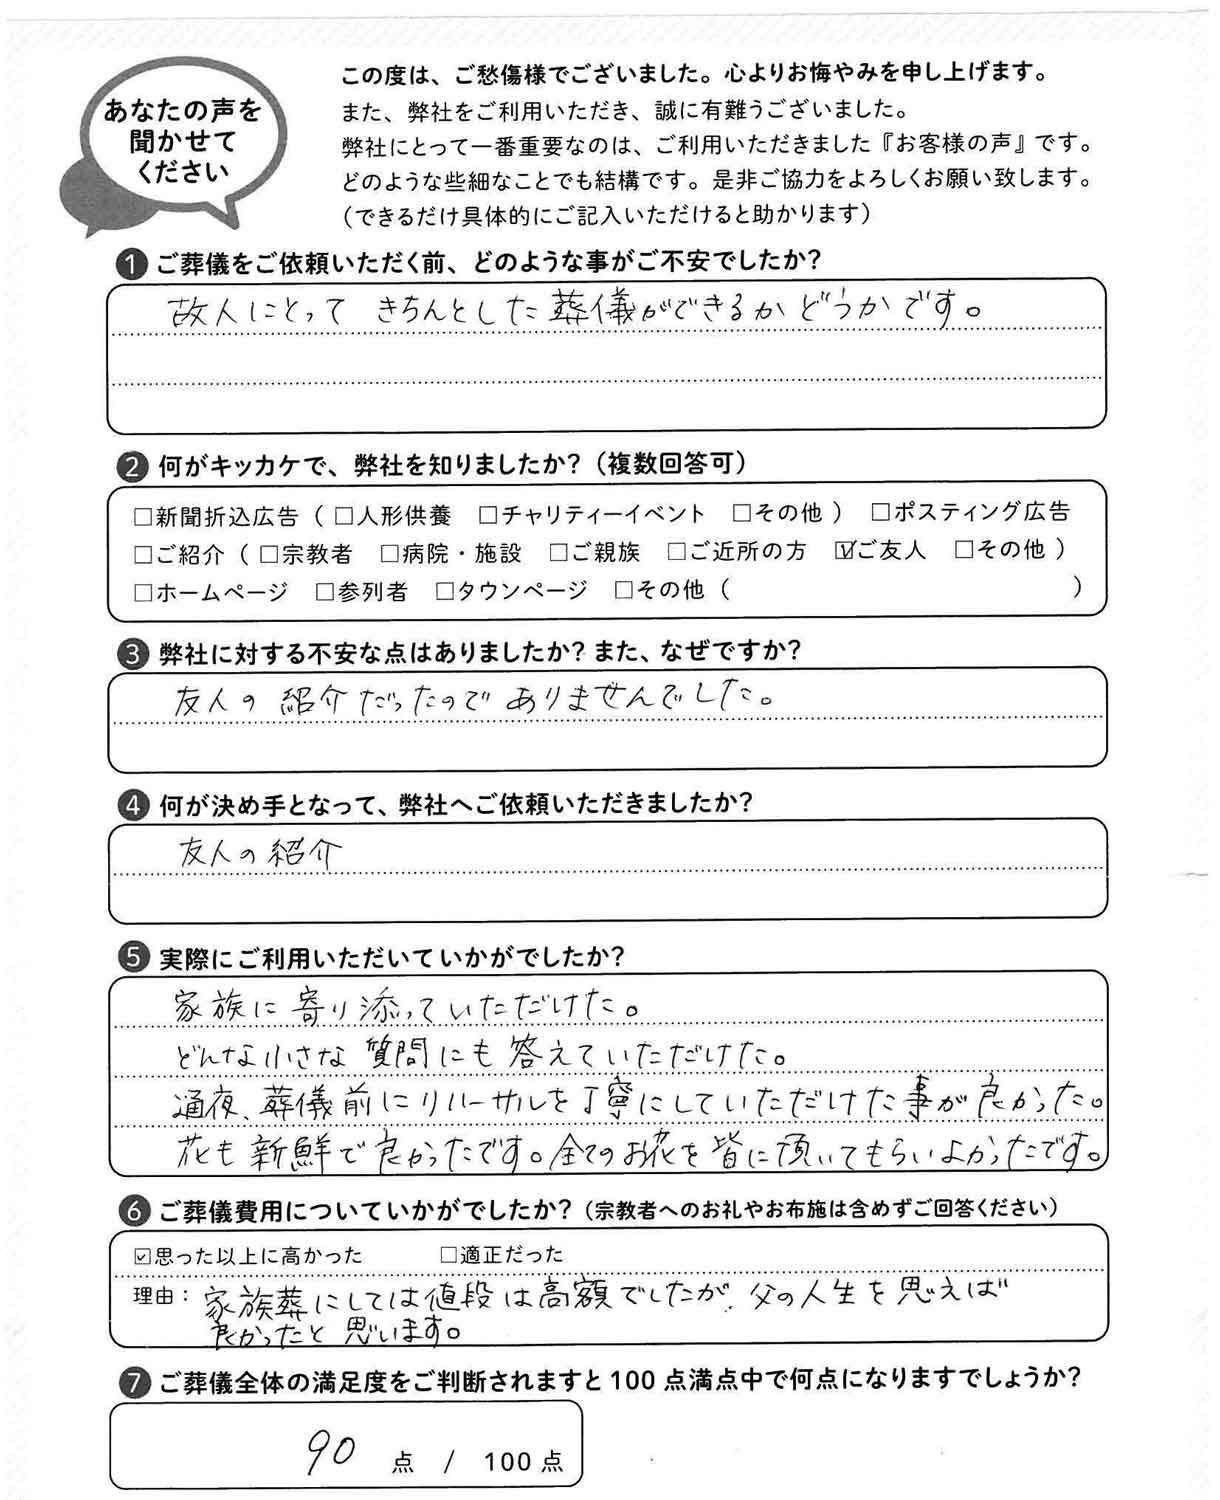 あなたの声を
聞かせて
ください
この度は、ご愁傷様でございました。心よりお悔やみを申し上げます。
また、弊社をご利用いただき、誠に有難うございました。
弊社にとって一番重要なのは、ご利用いただきました『お客様の声』です。
どのような些細なことでも結構です。是非ご協力をよろしくお願い致します。
（できるだけ具体的にご記入いただけると助かります）
❶ ご葬儀をご依頼いただく前、どのような事がご不安でしたか？
故人にとって きちんとした葬儀ができるかどうかです。
❷ 何がキッカケで、弊社を知りましたか？（複数回答可）
□新聞折込広告（ □人形供養 □チャリティーイベント □その他 ） □ポスティング広告
□ご紹介（ □宗教者 □病院・施設 □ご親族 □ご近所の方 ☑ご友人 □その他 ）
□ホームページ □参列者 □タウンページ □その他（ ）
❸ 弊社に対する不安な点はありましたか？また、なぜですか？
友人の紹介だったのでありませんでした。
❹ 何が決め手となって、弊社へご依頼いただきましたか？
友人の紹介
❺ 実際にご利用いただいていかがでしたか？
家族に寄り添っていただけた。
どんな小さな質問にも答えていただけた。
通夜、葬儀前にリハーサルを丁寧にしていただけた事が良かった。
花も新鮮で良かったです。全てのお花を皆に頂いてもらいよかったです。
❻ ご葬儀費用についていかがでしたか？（宗教者へのお礼やお布施は含めずご回答ください）
☑思った以上に高かった □適正だった
理由： 家族葬にしては値段は高額でしたが、父の人生を思えば
良かったと思います。
❼ ご葬儀全体の満足度をご判断されますと100点満点中で何点になりますでしょうか？
90 点 / 100点